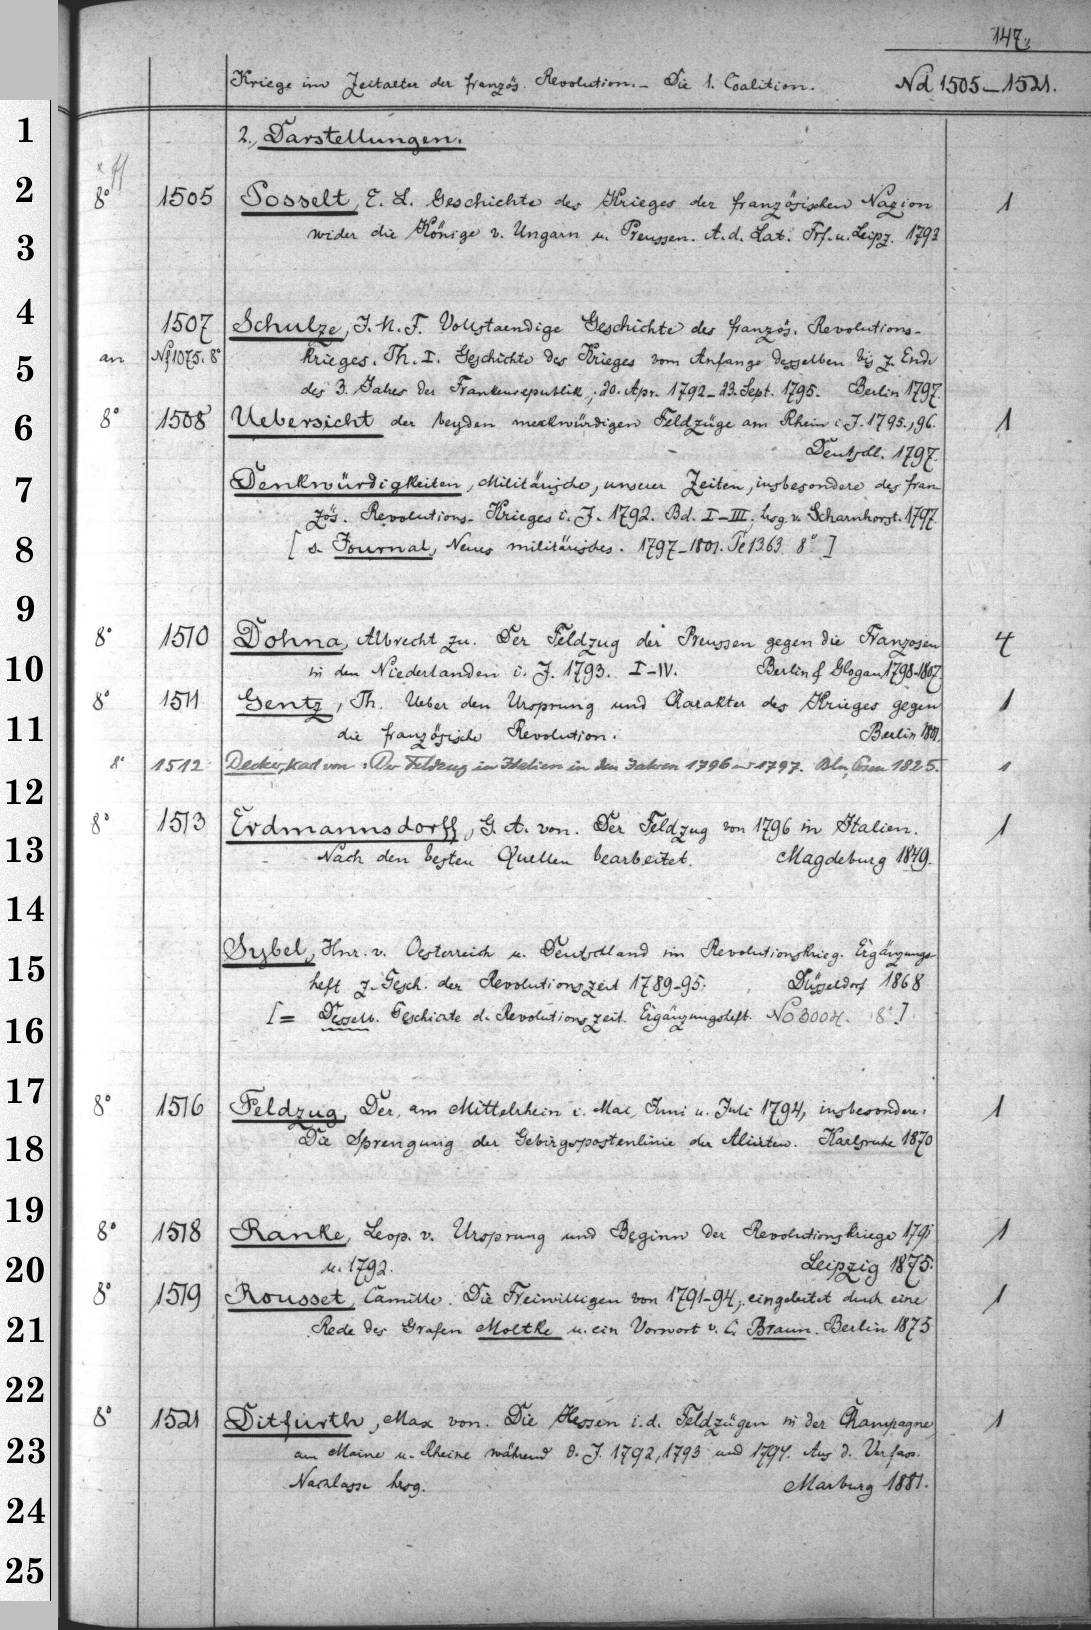 147.
Kriege im Zeitalter der französ. Revolution. - Die 1. Coalition. Nd 1505-1521.
1 2., Darstellungen.
2 8° 1505 Posselt, E. L. Geschichte des Krieges der französischen Nazion 1
3 wider die Könige v. Ungarn u. Preussen. A. d. Lat. Frf. u. Leipz. 1793
4 1507 Schulze, J. M. F. Vollstaendige Geschichte des französ. Revolutions-
5 an Nf 1075. 8° krieges. Th. I. Geschichte des Krieges vom Anfange desselben bis z. Ende
des 3. Jahres der Frankenrepublik, 20. Apr. 1792-23. Sept. 1795. Berlin 1797.
6 8° 1508 Uebersicht der beyden merkwürdigen Feldzüge am Rhein i. J. 1795., 96. 1
Deutschl. 1797.
7 Denkwürdigkeiten, Militärische, unserer Zeiten, insbesondere des fran
zös. Revolutions-Krieges i. J. 1792. Bd. I-III, hsg. v. Scharnhorst. 1797.
8 [s. Journal, Neues militärisches. 1797-1801. Te 1363 8°]
9
8° 1510 Dohna, Albrecht zu. Der Feldzug der Preussen gegen die Franzosen 4
10 in den Niederlanden i. J. 1793. I-IV. Berlin & Glogau 1798-1807.
8° 1511 Gentz, Th. Ueber den Ursprung und Charakter des Krieges gegen 1
11 die französische Revolution. Berlin 1801.
8° 1512 Decker, Karl von: Der Feldzug in Italien in den Jahren 1796 und 1797. Bln, Posen 1825. 1
12
8° 1513 Erdmannsdorff, G. A. von. Der Feldzug von 1796 in Italien. 1
13 Nach den besten Quellen bearbeitet. Magdeburg 1849.
14
Sybel, Hnr. v. Oesterreich u. Deutschland im Revolutionskrieg. Ergänzungs-
15 heft z. Gesch. der Revolutionszeit 1789-95. Düsseldorf 1868
16 [= Desselb. Geschichte d. Revolutionszeit. Ergänzungsheft. No 3004. 8°]
17 8° 1516 Feldzug, Der, am Mittelrhein i. Mai, Juni u. Juli 1794, insbesondere: 1
18 Die Sprengung der Gebirgspostenlinie der Aliirten. Karlsruhe 1870
19
8° 1518 Ranke, Leop. v. Ursprung und Beginn der Revolutionskriege 1791 1
20 u. 1792. Leipzig 1875.
8° 1519 Rousset, Camille. Die Freiwilligen von 1791-94, eingeleitet durch eine 1
21 Rede des Grafen Moltke u. ein Vorwort v. C. Braun. Berlin 1875
22
8° 1521 Ditfurth, Max von. Die Hessen i. d. Feldzügen in der Champagne, 1
23 am Maine u. Rheine während d. J. 1792, 1793 und 1794. Aus d. Verfass.
24 Nachlasse hrsg. Marburg 1881.
25